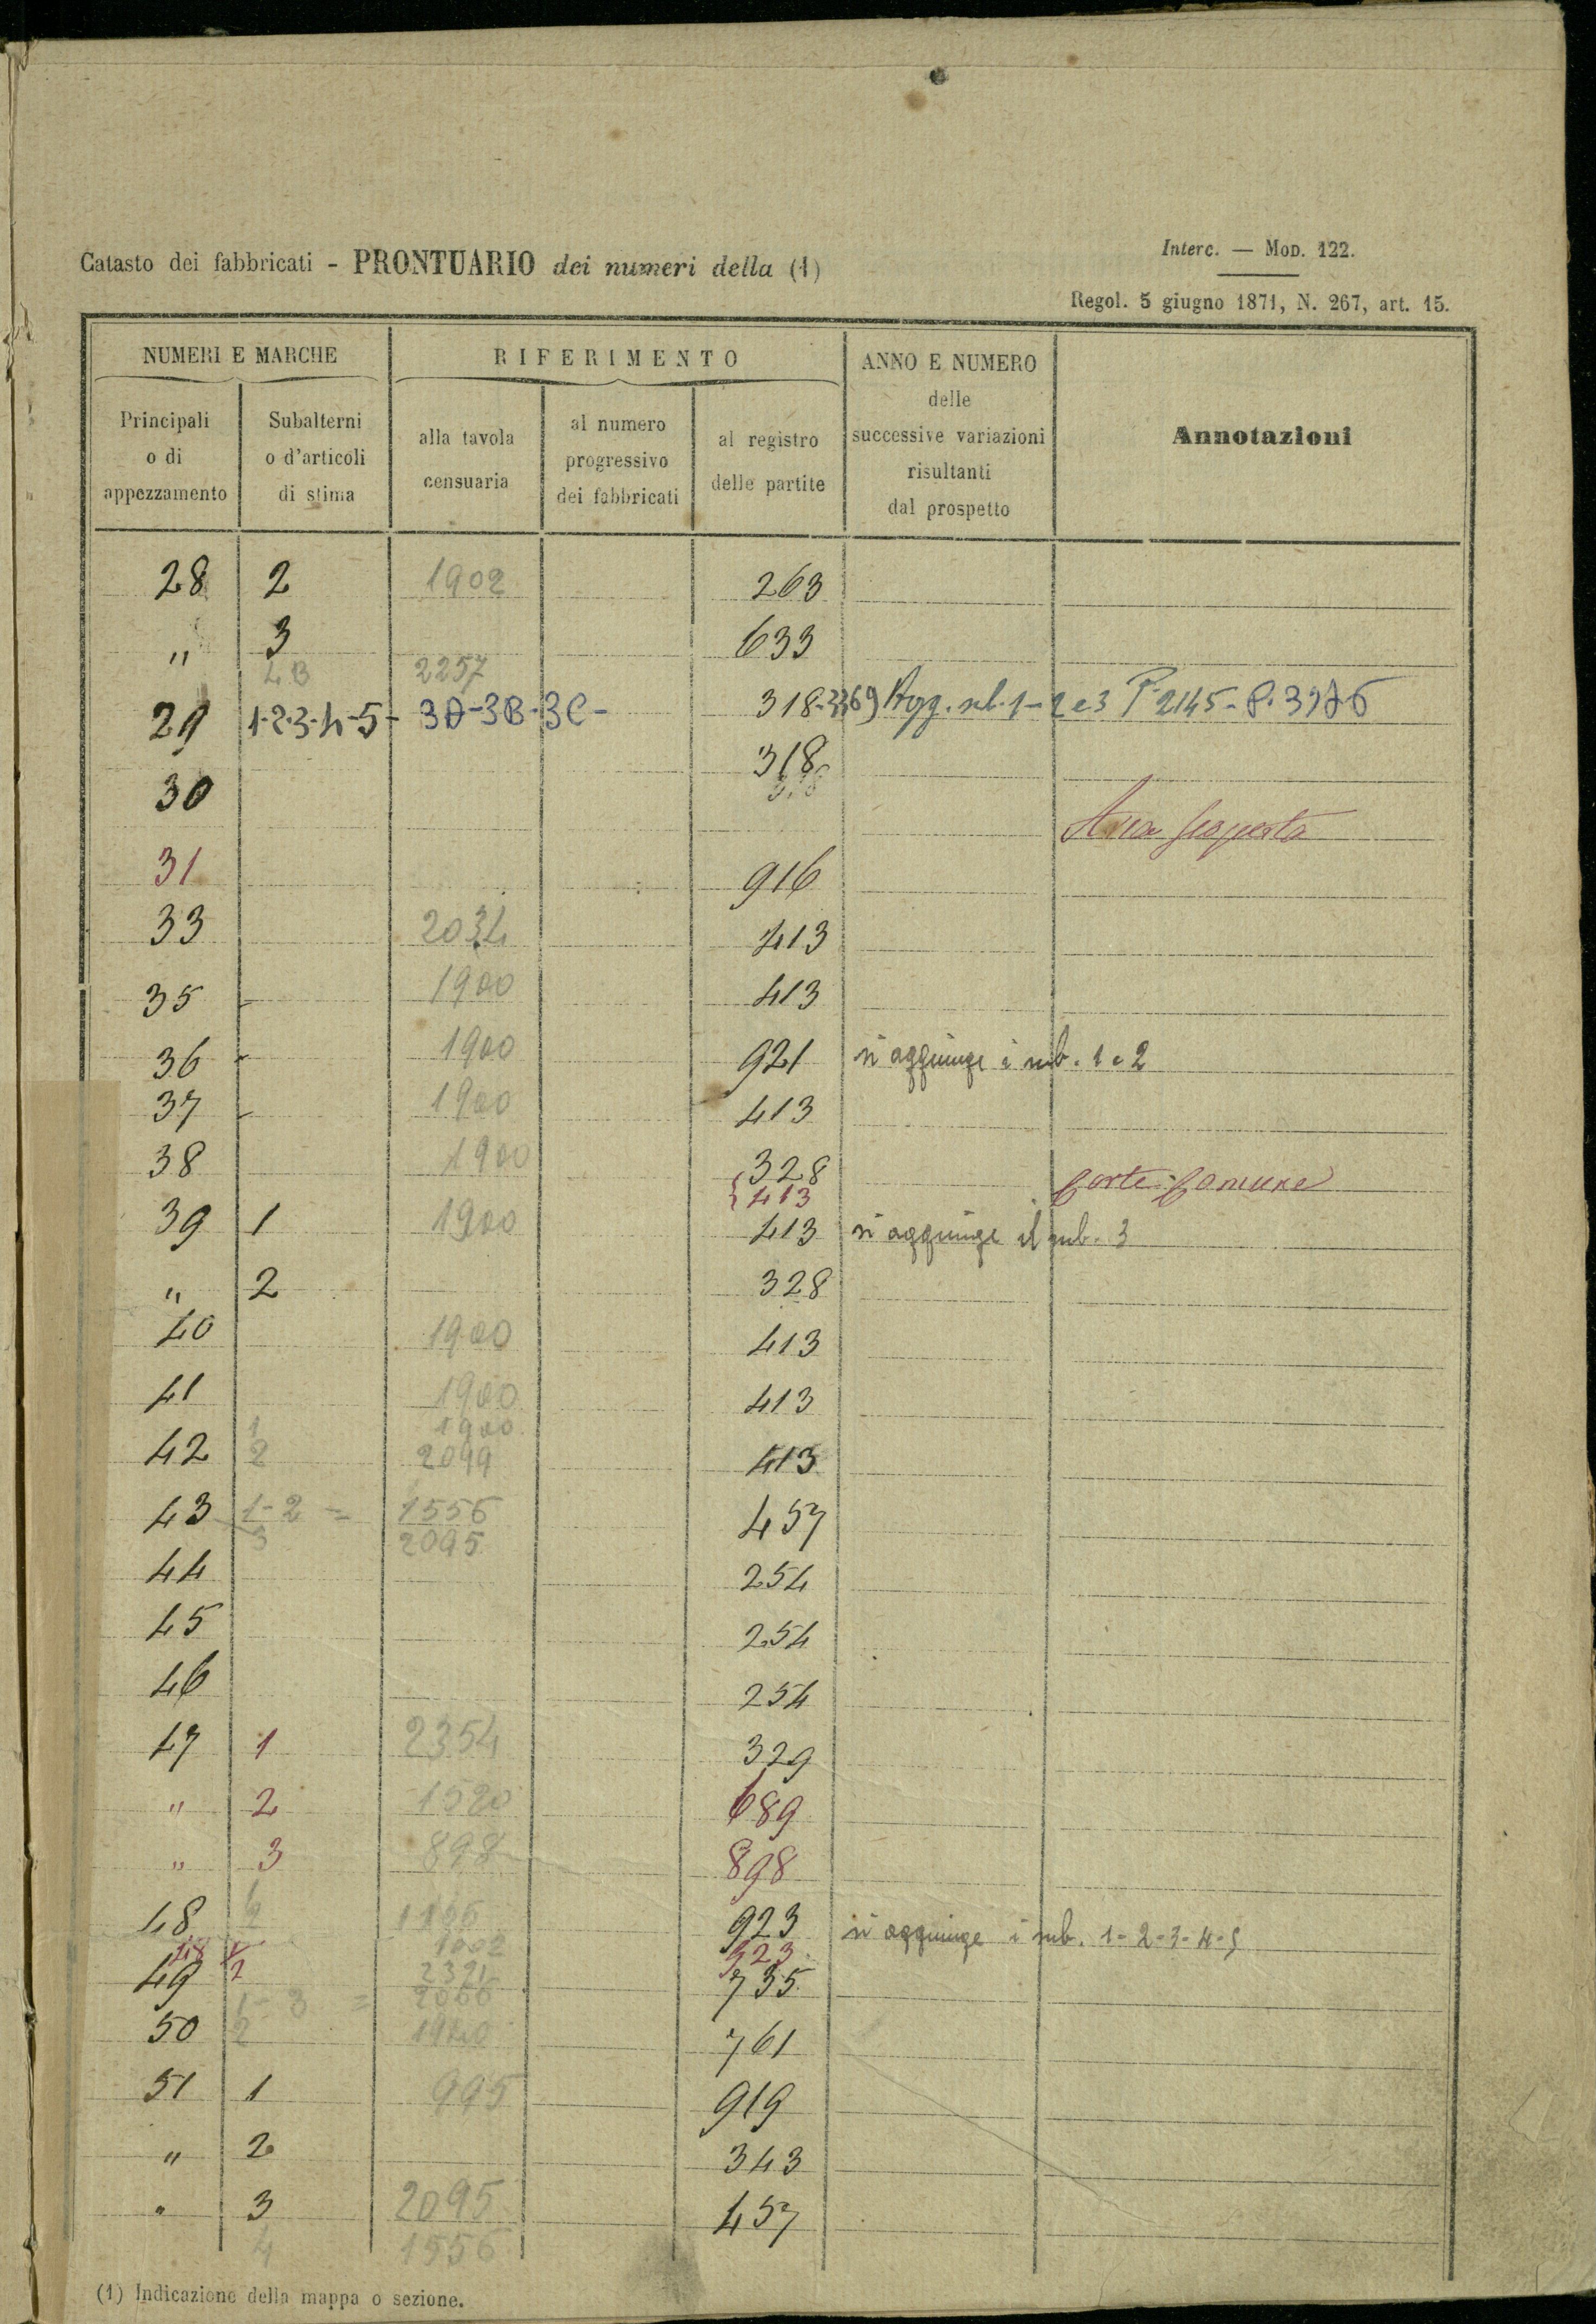 Interc. — MOD. 122.
Catasto dei fabbricati - PRONTUARIO dei numeri della (1)
Regol. 5 giugno 1871, N. 267, art. 15.
NUMERI E MARCHE
Principali o di appezzamento
Subalterni o d'articoli di stima
RIFERIMENTO
alla tavola censuaria
al numero progressivo dei fabbricati
al registro delle partite
ANNO E NUMERO delle successive variazioni risultanti dal prospetto
Annotazioni
28 2 1902 263
" 3 633
2257
29 1-2-3-4-5- 3A-3B-3C- 318-3369 Agg. sub. 1-2 e 3 P 2145 - P. 3976
30 318
318
Area scoperta
31 916
33 2034 413
35 - 1900 413
36 - 1900 921 si aggiunge i sub. 1 e 2
37 - 1900 413
38 1900 328 Corte Comune
413
39 1 1900 413 si aggiunge il sub. 3
" 2 328
40 1900 413
41 1900 413
1 1900
42 2 2099 413
43 1-2 = 1556 457
3 2095
44 254
45 254
46 254
47 1 2354 329
" 2 1520 689
" 3 898 898
48 923 si aggiunge i sub. 1-2-3-4-5
49 2321 735
1-3 =
50 2 761
51 1 995 919
" 2 343
" 3 2095 457
4 1556
(1) Indicazione della mappa o sezione.